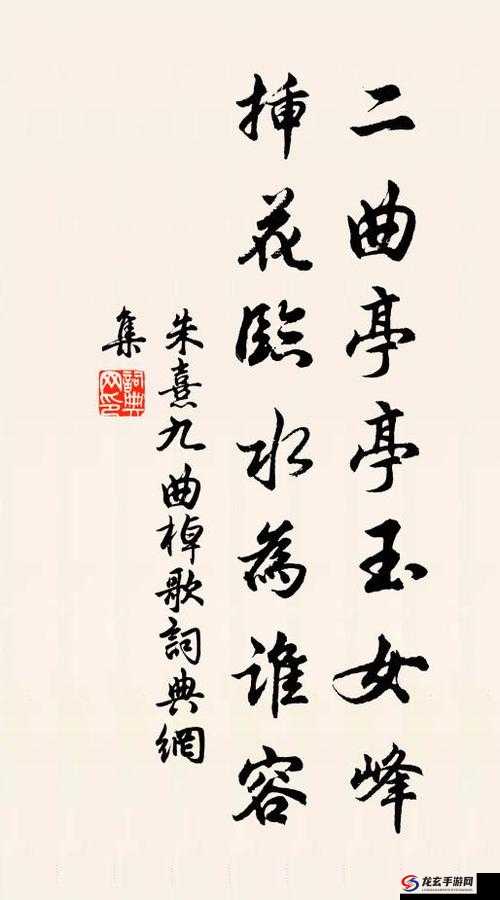 二曲亭亭玉女峰
插花臨水為誰容
朱熹九曲棹歌詞典網
集
詞典
网印
龙玄手游网